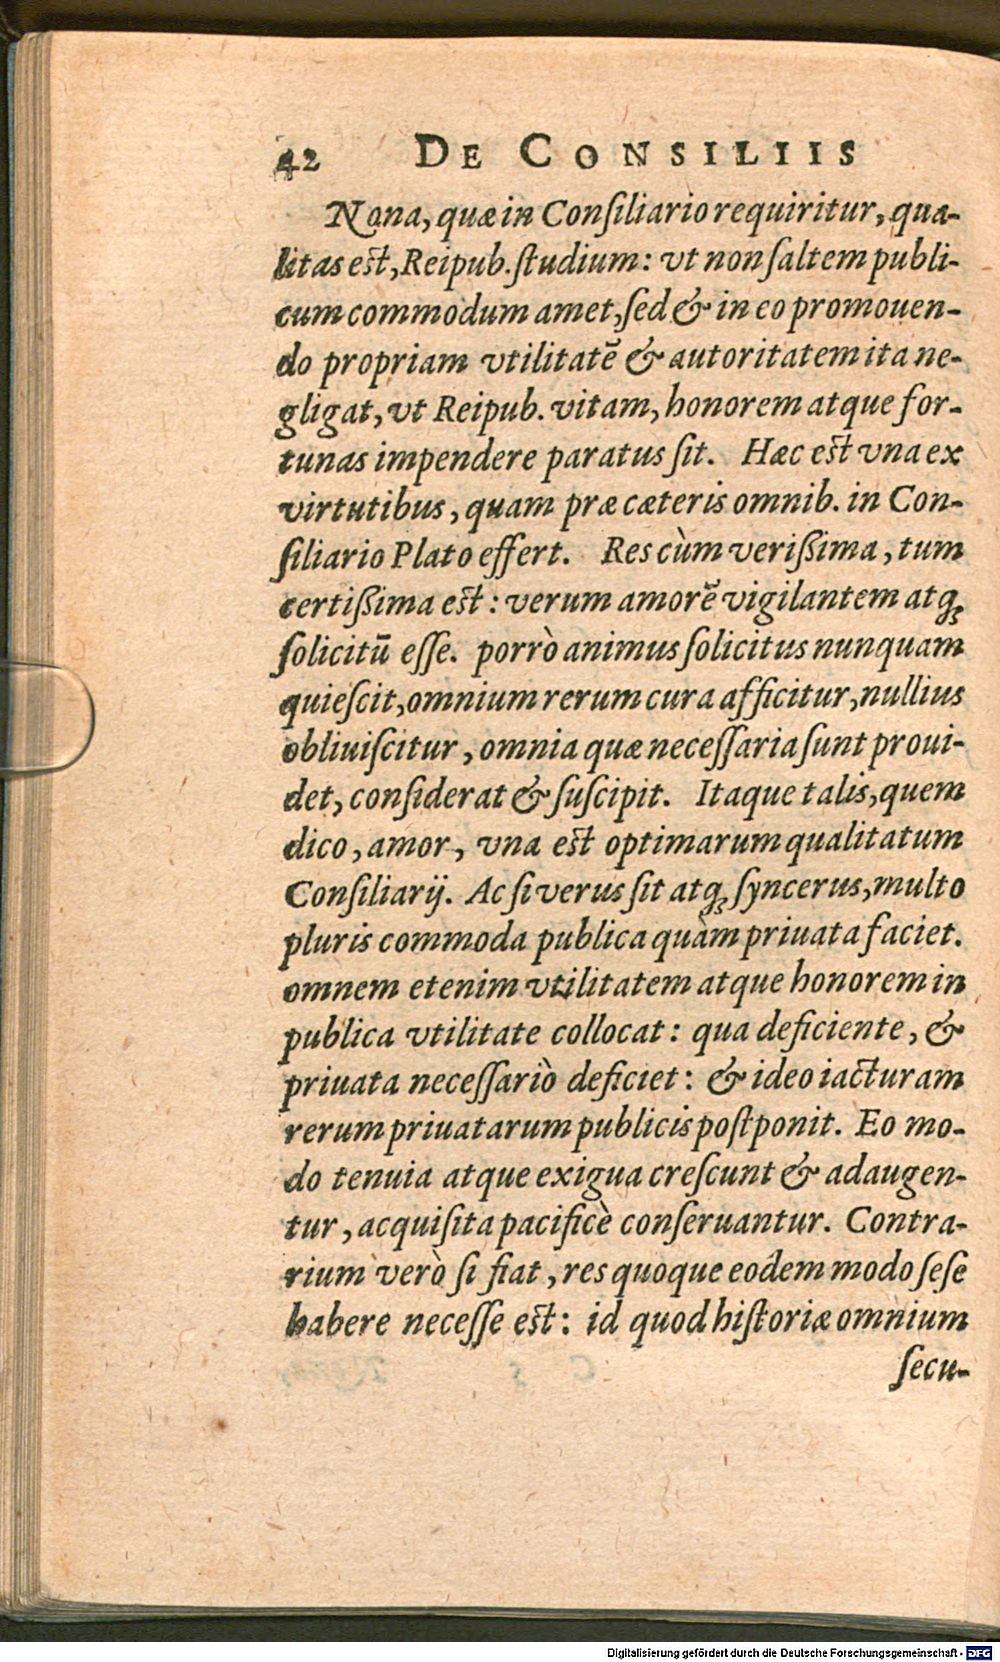 42 DE CONSILIIS
Nona, quæ in Conſiliario requiritur, qua-
litas eſt, Reipub. ſtudium: vt non ſaltem publi-
cum commodum amet, ſed & in eo promouen-
do propriam vtilitatē & autoritatem ita ne-
gligat, vt Reipub. vitam, honorem atque for-
tunas impendere paratus ſit. Hæc eſt vna ex
virtutibus, quam præ cæteris omnib. in Con-
ſiliario Plato effert. Res cùm verißima, tum
certißima eſt: verum amorē vigilantem atq;
ſolicitū eſſe. porrò animus ſolicitus nunquam
quieſcit, omnium rerum cura afficitur, nullius
obliuiſcitur, omnia quæ neceſſaria ſunt proui-
det, conſiderat & ſuſcipit. Itaque talis, quem
dico, amor, vna eſt optimarum qualitatum
Conſiliarij. Ac ſi verus ſit atq; ſyncerus, multo
pluris commoda publica quàm priuata faciet.
omnem etenim vtilitatem atque honorem in
publica vtilitate collocat: qua deficiente, &
priuata neceſſariò deficiet: & ideo iacturam
rerum priuatarum publicis poſtponit. Eo mo-
do tenuia atque exigua creſcunt & adaugen-
tur, acquiſita pacificè conſeruantur. Contra-
rium verò ſi fiat, res quoque eodem modo ſeſe
habere neceſſe eſt: id quod hiſtoriæ omnium
ſecu-
Digitalisierung gefördert durch die Deutsche Forschungsgemeinschaft - DFG